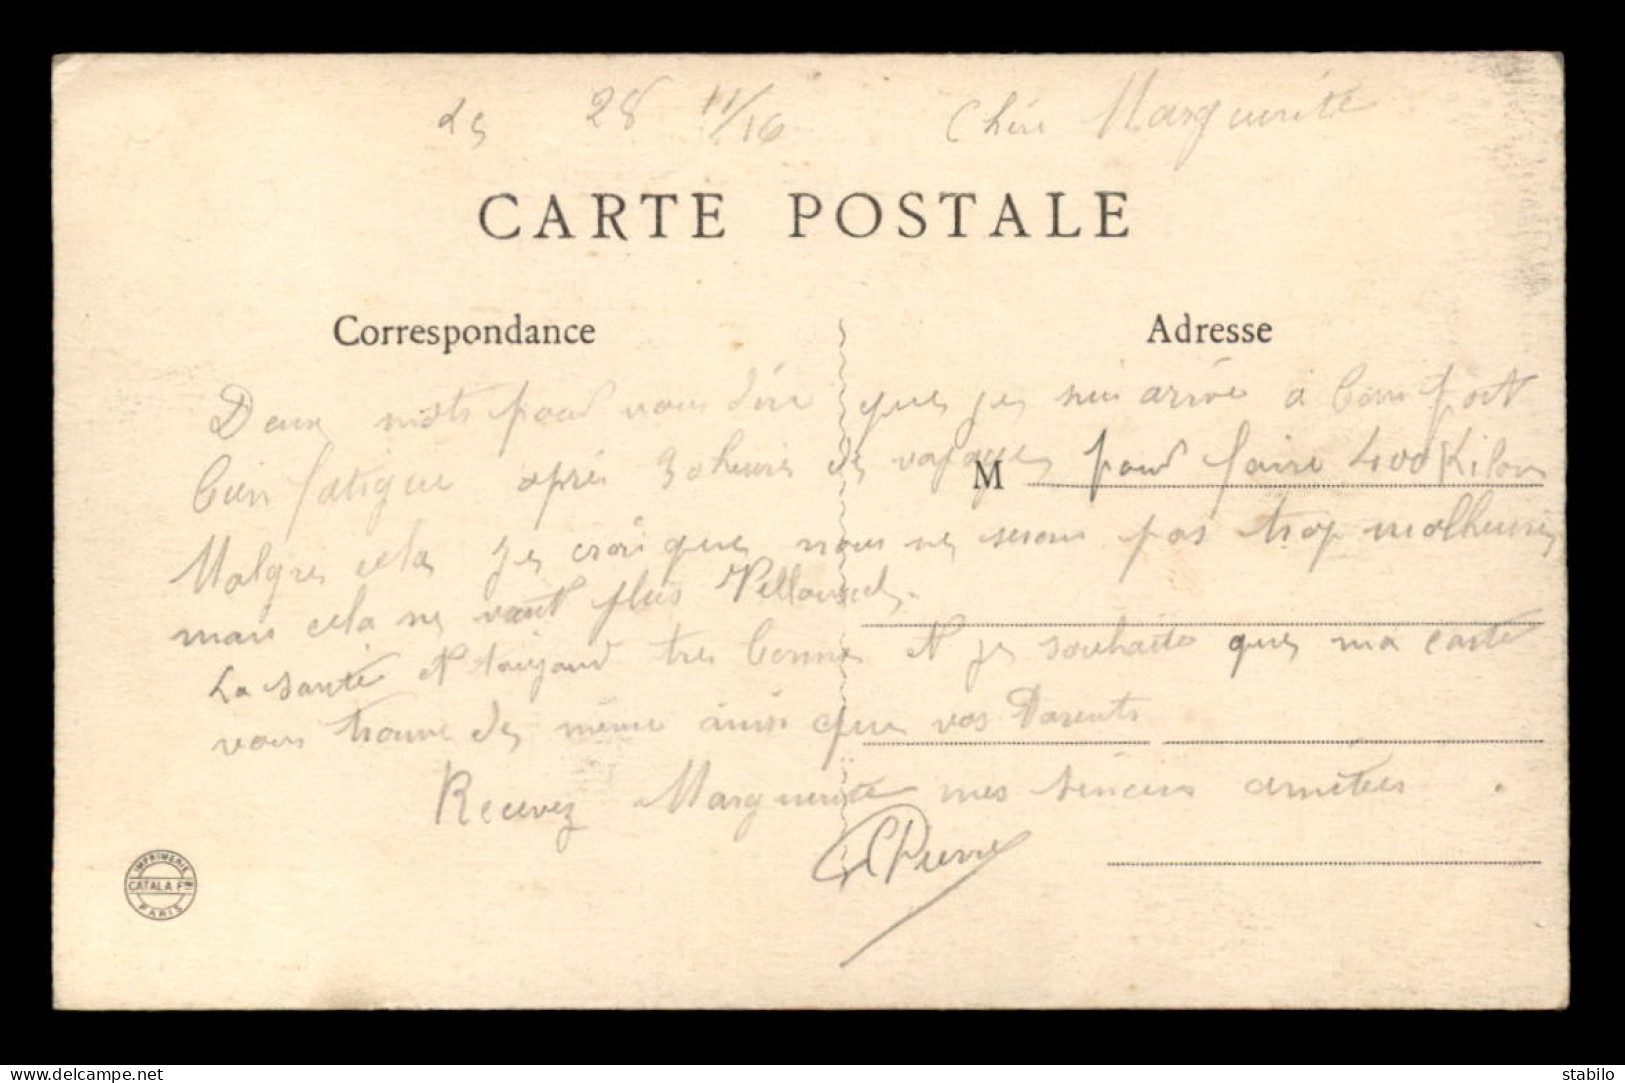 le 28 11/16 Chère Marguerite
CARTE POSTALE
Correspondance Adresse
Deux mots pour vous dire que je suis arrivé à bon port
bien fatigué après 30 heures de voyage pour faire 400 Kilom
M
Malgre cela je crois que nous ne serons pas trop malheureux
mais cela ne vaut plus
La santé et toujour très bonne et je souhaite que ma carte
vous trouve de même ainsi que vos Parents
Recevez Marguerite mes sincères amitiées.
Pierre
IMPRIMERIE
CATALA Fres
PARIS
www.delcampe.net
stabilo